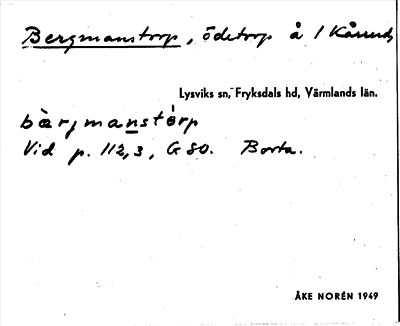 Bergmanstorp, ödetorp å 1 Kårund,
Lysviks sn, Fryksdals hd, Värmlands län.
bærjmanstórp
Vid p. 112,3, G 80. Borta.
ÅKE NORÉN 1949